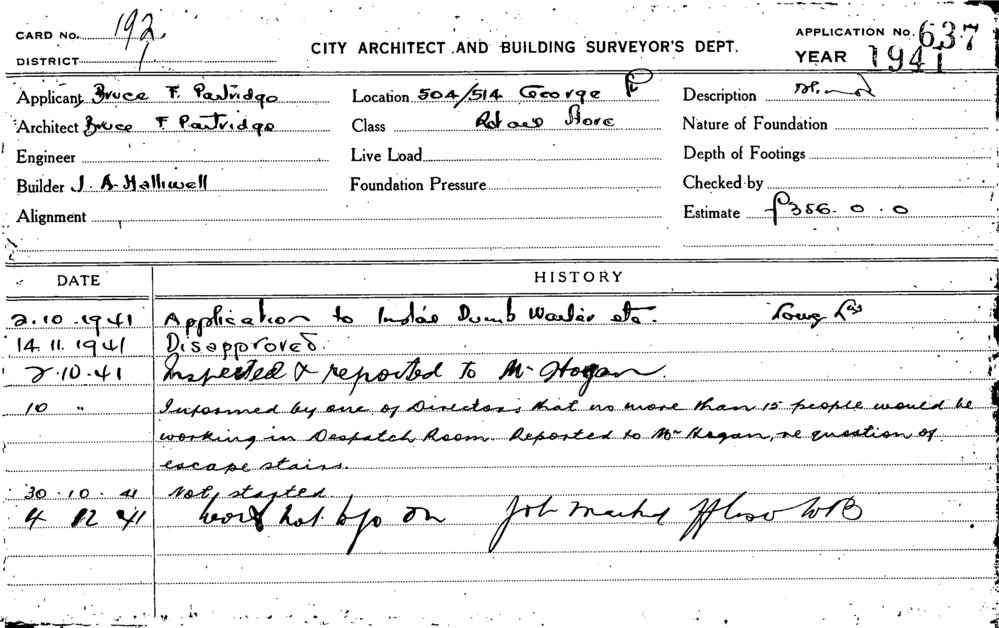 CARD No. 192
DISTRICT 1
CITY ARCHITECT AND BUILDING SURVEYOR'S DEPT.
APPLICATION No. 637
YEAR 1941
Applicant Bruce F. Partridge
Location 504/514 George
Description
Architect Bruce F Partridge
Class Store
Nature of Foundation
Engineer
Live Load
Depth of Footings
Builder J. A. Halliwell
Foundation Pressure
Checked by
Alignment
Estimate £356. 0. 0
DATE HISTORY
2.10.1941 Application to Dumb Waiter etc.
14.11.1941 Disapproved.
2.10.41 Inspected & reported to Mr Hogan.
10 " Informed by one of Directors that no more than 15 people would be
working in Despatch Room. Reported to Mr Hogan, re question of
escape stairs.
30.10.41 Not started.
4 12 41 Work not on Job marked WB